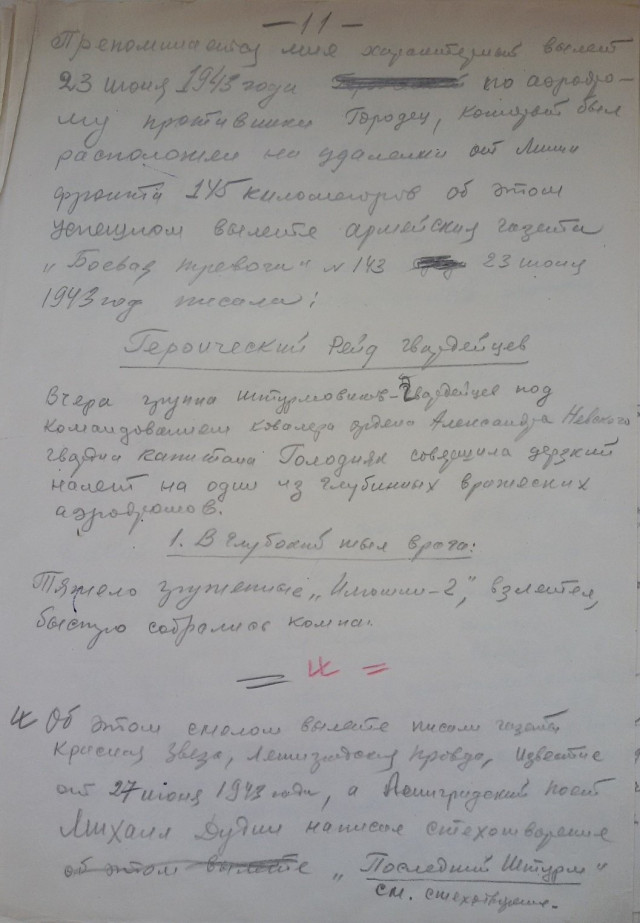 – 11 –
Препоминается мне характерный вылет
23 июня 1943 года по аэродро-
му противника Городец, который был
расположен на удалении от линии
фронта 145 километров об этом
успешном вылете армейская газета
"Боевая тревога" N 143 23 июня
1943 год писала:
Героический Рейд гвардейцев
Вчера группа штурмовиков-Гвардейцев под
командованием кавалера ордена Александра Невского
гвардии капитана Голодняк совершила дерзкий
налет на один из глубинных вражеских
аэродромов.
1. В глубокий тыл врага:
Тяжело груженные "Илюшин-2", взлетев,
быстро собрались
= =
Об этом смелом вылете писали газеты
Красная Звезда, Ленинградская правда, Известие
от 27 июня 1943 года, а Ленинградский поэт
Михаил Дудин написал стехотворение
об этом вылете "Последний Штурм"
см. стехотворение.